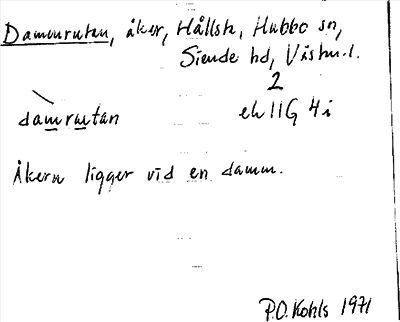 Dammrutan, åker, Hållsta, Hubbo sn,
Siende hd, Västm.l.
2
damrutan ek 11G 4i
Åkern ligger vid en damm.
P.O. Kohls 1971